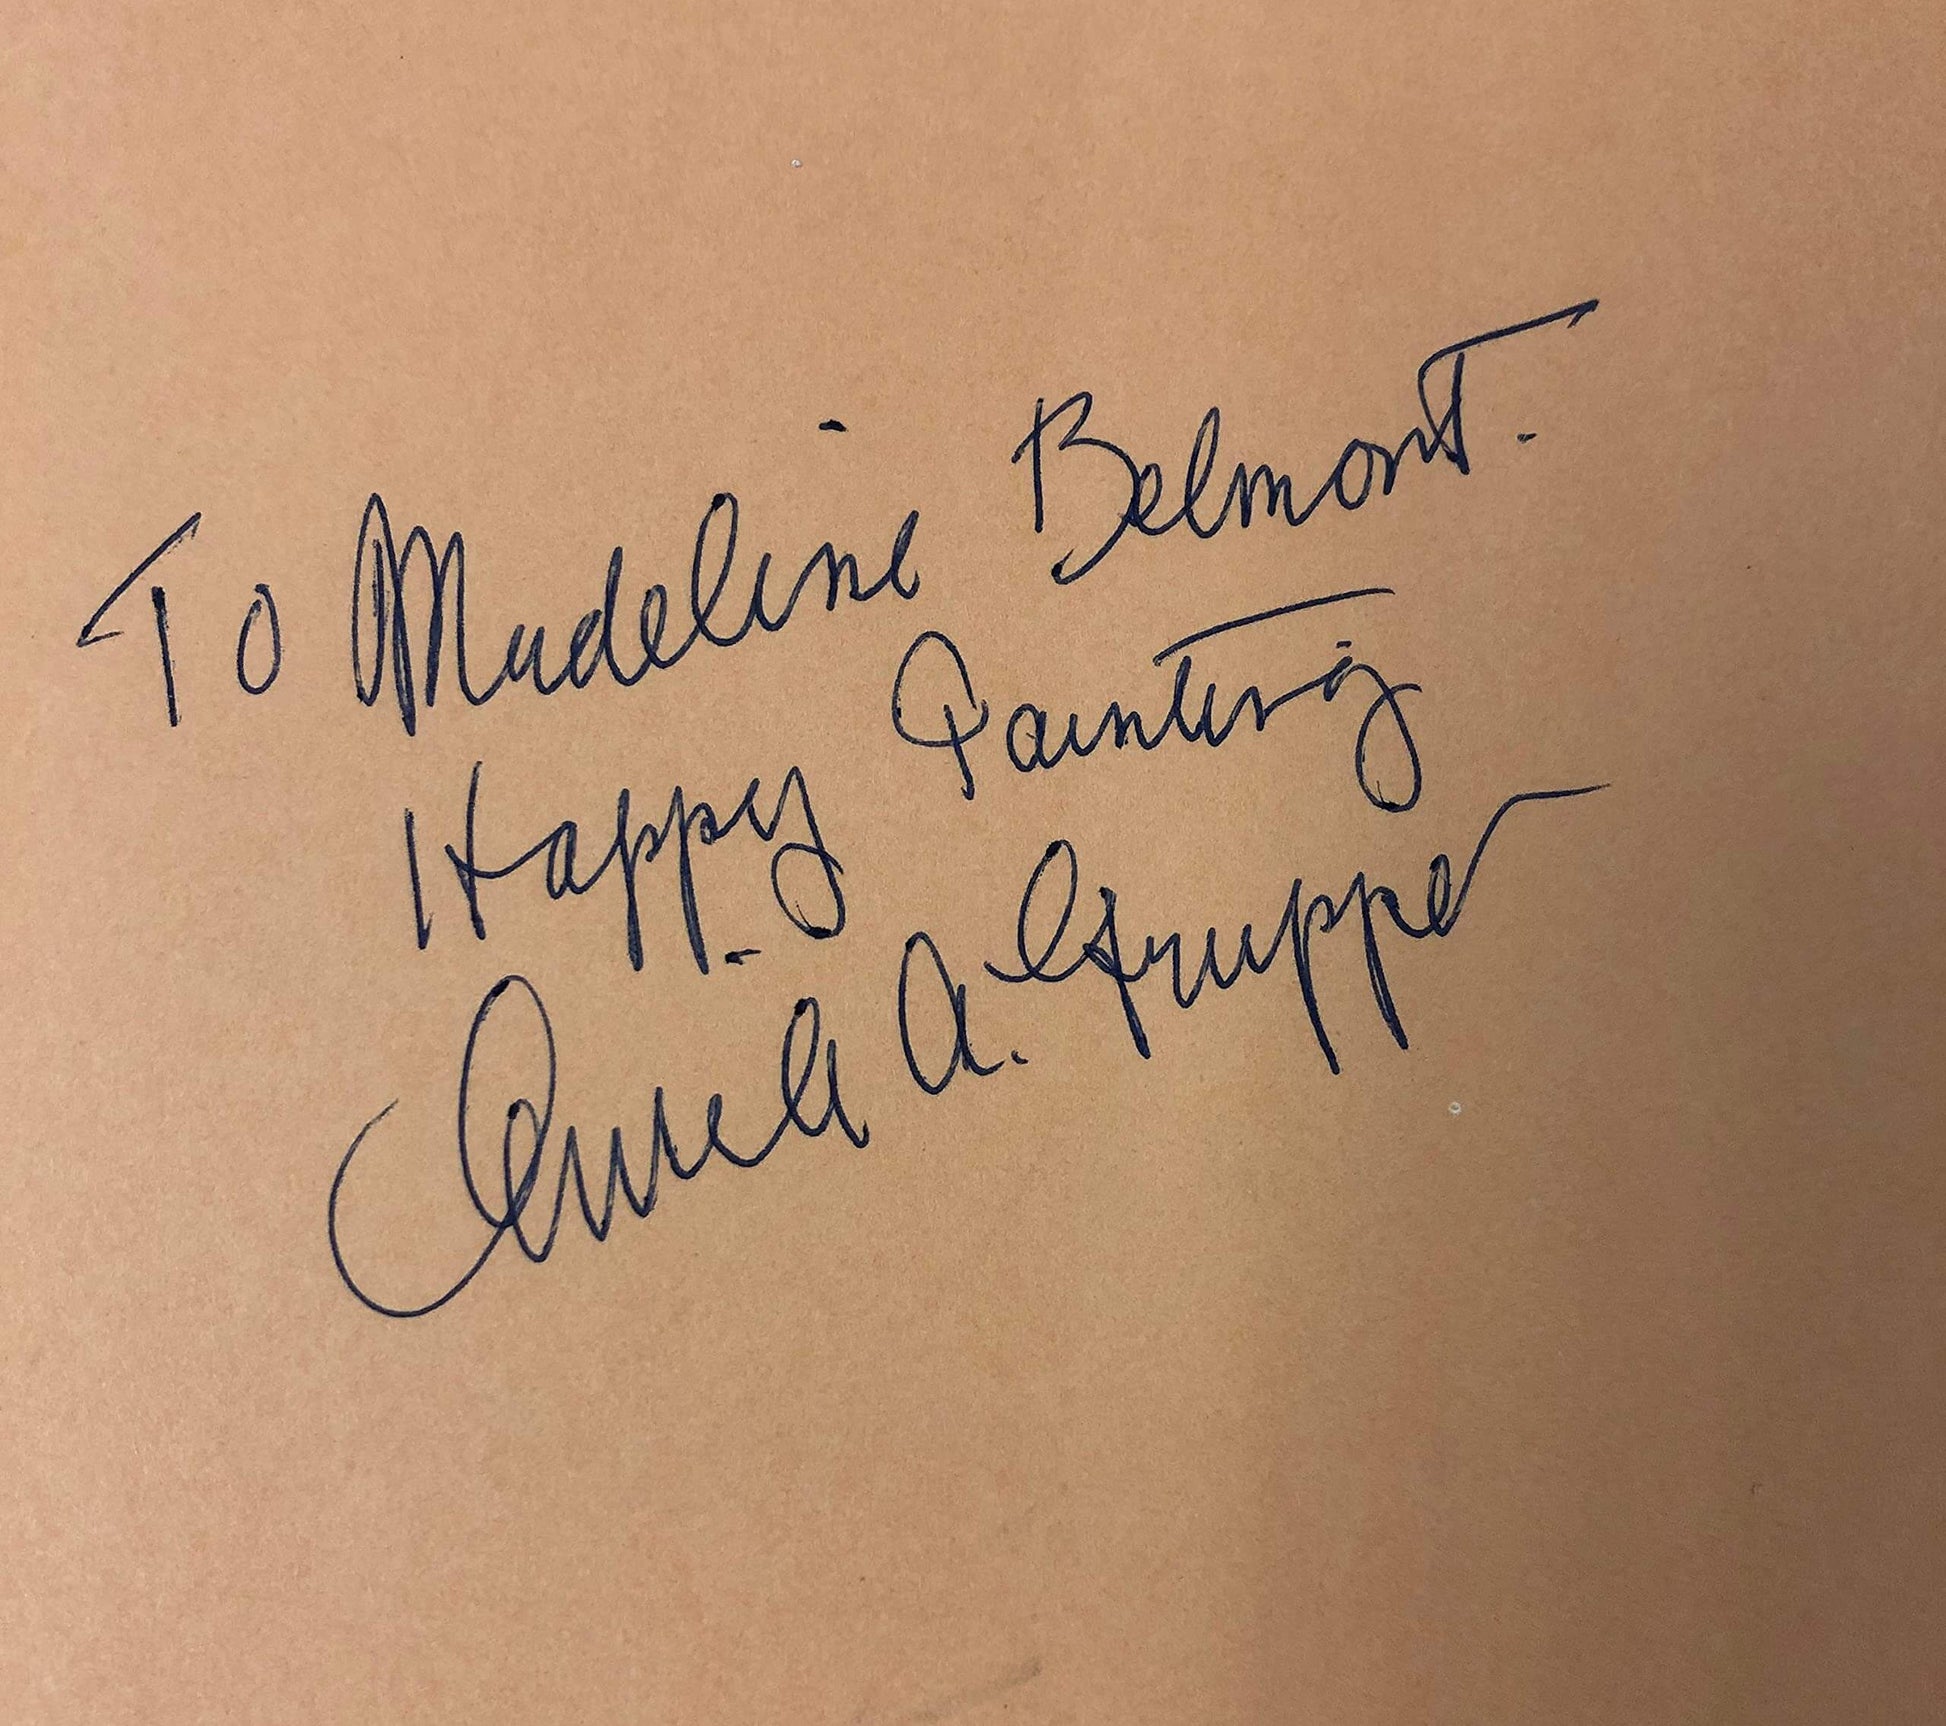 To Madeline Belmont.
Happy Painting
Emile A. Gruppe